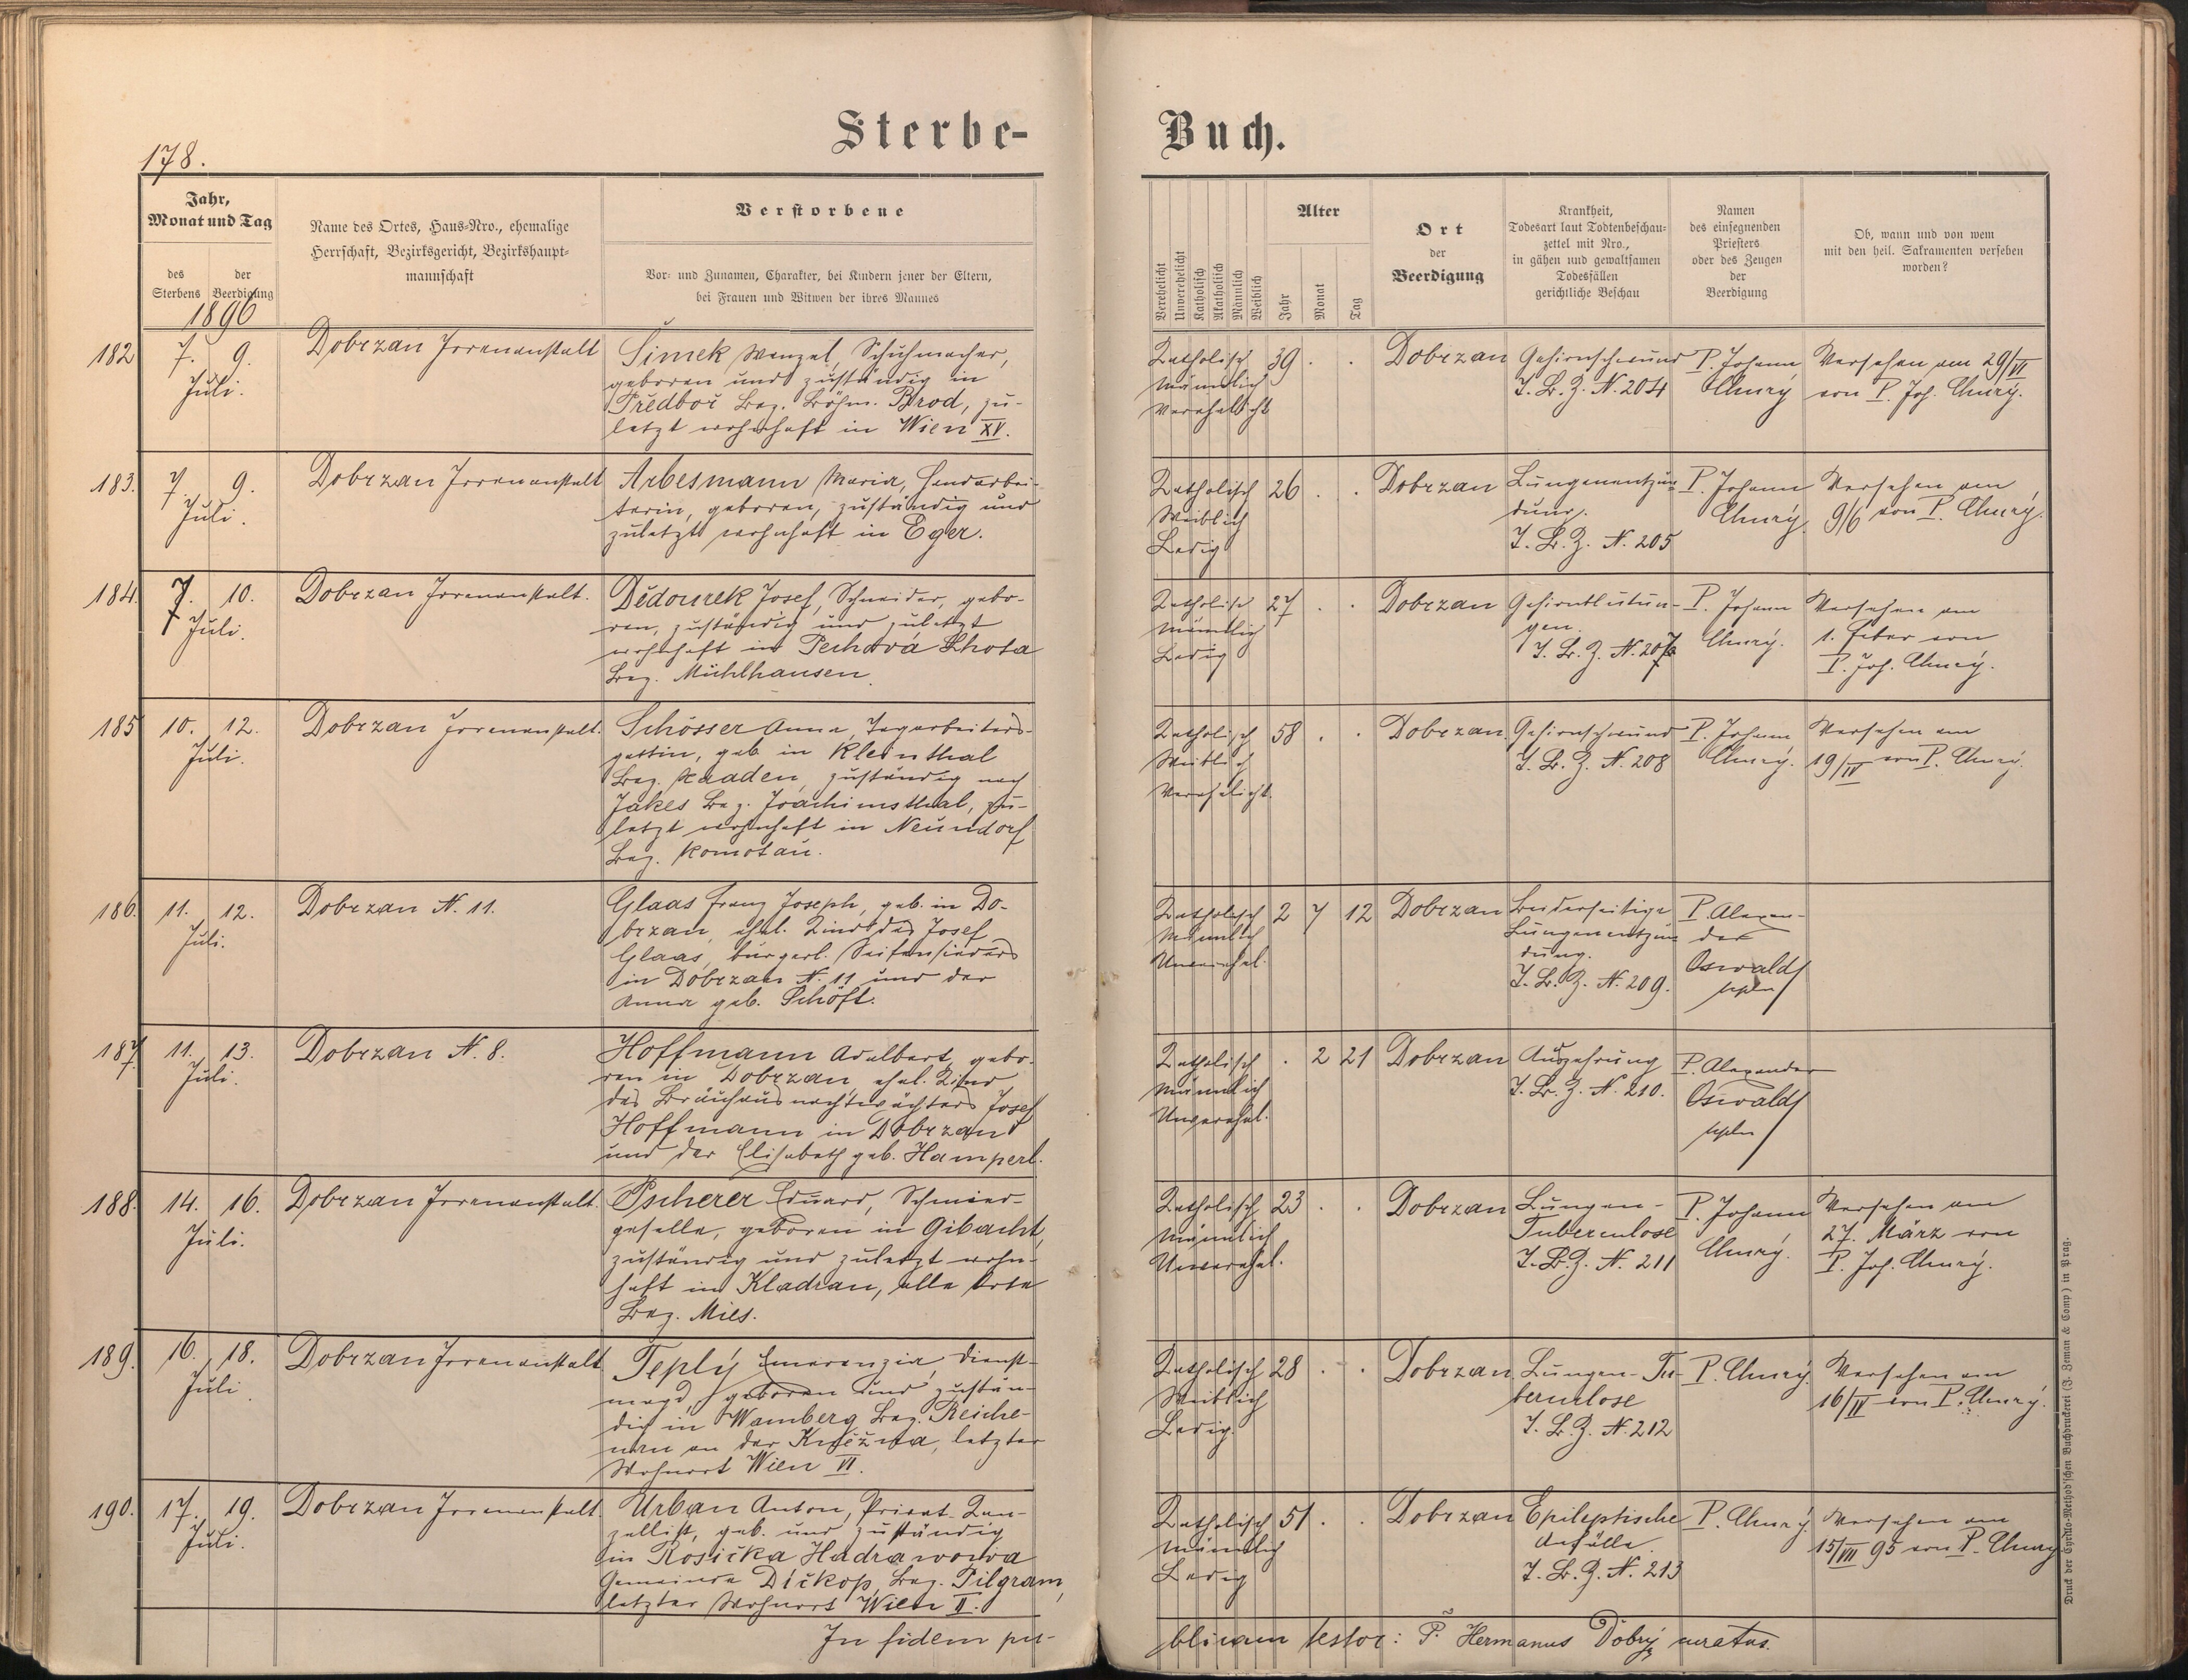 Sterbe-
Buch.
178.
Jahr,
Monat und Tag
des Sterbens
der Beerdigung
1896
Name des Ortes, Haus-Nro., ehemalige
Herrschaft, Bezirksgericht, Bezirkshaupt-
mannschaft
Verstorbene
Vor- und Zunamen, Charakter, bei Kindern jener der Eltern,
bei Frauen und Witwen der ihres Mannes
Verehelicht
Unverehelicht
Katholisch
Akatholisch
Männlich
Weiblich
Alter
Jahr
Monat
Tag
Ort
der
Beerdigung
Krankheit,
Todesart laut Todtenbeschau-
zettel mit Nro.,
in gähen und gewaltsamen
Todesfällen
gerichtliche Beschau
Namen
des einsegnenden
Priesters
oder des Zeugen
der
Beerdigung
Ob, wann und von wem
mit den heil. Sakramenten versehen
worden?
182
7. 9.
Juli.
Dobrzan Irrenanstalt
Šimek Wenzel, Schuhmacher,
geboren und zuständig in
Předboř Bez. Böhm. Brod, zu-
letzt wohnhaft in Wien XV.
Katholisch
Männlich
Verehelicht
39 . .
Dobrzan
Gehirnschwund
T. B. Z. N. 204
P. Johann
Chury
Versehen am 29/VI
von P. Joh. Churý.
183.
7. 9.
Juli.
Dobrzan Irrenanstalt
Arbesmann Maria, Handarbei-
terin, geboren, zuständig und
zuletzt wohnhaft in Eger.
Katholisch
Weiblich
Ledig
26 . .
Dobrzan
Lungenentzün-
dung.
T. B. Z. N. 205
P. Johann
Churý.
Versehen am
9/6 von P. Churý.
184.
7. 10.
Juli.
Dobrzan Irrenanstalt.
Dědourek Josef, Schneider, gebo-
ren, zuständig und zuletzt
wohnhaft in Pechová Lhota
Bez. Mühlhausen.
Katholisch
Männlich
Ledig
27 . .
Dobrzan
Gehirnblutun-
gen.
T. B. Z. N. 207
P. Johann
Churý.
Versehen am
1. Feber von
P. Joh. Churý.
185
10. 12.
Juli.
Dobrzan Irrenanstalt.
Schösser Anna, Tagarbeiters-
gattin, geb. in Kleinthal
Bez. Kaaden, zuständig nach
Jakes Bez. Joachimsthal, zu-
letzt wohnhaft in Neundorf
Bez. Komotau.
Katholisch
Weiblich
Verehelicht.
58 . .
Dobrzan.
Gehirnschwund
T. B. Z. N. 208
P. Johann
Churý.
Versehen am
19/IV von P. Churý.
186.
11. 12.
Juli.
Dobrzan N. 11.
Glaas Franz Joseph, geb. in Do-
brzan, ehel. Kind des Josef
Glaas, bürgerl. Seifensieders
in Dobrzan N. 11 und der
Anna geb. Schöft.
Katholisch
Männlich
Unverehel.
2 7 12
Dobrzan
Beiderseitige
Lungenentzün
dung.
T. B. Z. N. 209.
P. Alexan-
der
Oswald
187
11. 13.
Juli.
Dobrzan N. 8.
Hoffmann Adalbert, gebo-
ren in Dobrzan, ehel. Kind
des Bräuhausnachtwächters Josef
Hoffmann in Dobrzan
und der Elisabeth geb. Hamperl.
Katholisch
Männlich
Unverehel.
. 2 21
Dobrzan
Auszehrung
T. B. Z. N. 210.
P. Alexander
Oswald
188.
14. 16.
Juli.
Dobrzan Irrenanstalt.
Pscherer Eduard, Schmied-
geselle, geboren in Gibacht,
zuständig und zuletzt wohn-
haft in Kladrau, alle Orte
Bez. Mies.
Katholisch
Männlich
Unverehel.
23 . .
Dobrzan
Lungen-
Tuberculose
T. B. Z. N. 211
P. Johann
Churý.
Versehen am
27. März von
P. Joh. Churý.
189.
16. 18.
Juli
Dobrzan Irrenanstalt
Teplý Emerenzia, Dienst-
magd, geboren und zustän-
dig in Wamberg Bez. Reiche-
nau an der Kněžna, letzter
Wohnort Wien VI.
Katholisch
Weiblich
Ledig.
28 . .
Dobrzan
Lungen-Tu-
berculose
T. B. Z. N. 212
P. Churý.
Versehen am
16/IV von P. Churý.
190.
17. 19.
Juli.
Dobrzan Irrenanstalt.
Urban Anton, Privat-Kan-
zellist, geb. und zuständig
in Rosička Hadrawowa
Gemeinde Dičkop, Bez. Pilgram,
letzter Wohnort Wien II.
Katholisch
Männlich
Ledig
51 . .
Dobrzan
Epileptische
Anfälle.
T. B. Z. N. 213
P. Churý
Versehen am
15/VII 95 von P. Chury
In fidem pu-
blicam testor: P. Hermanus Dobrý curatus.
Druck der Cyrillo-Method'schen Buchdruckerei (J. Zeman & Comp) in Prag.